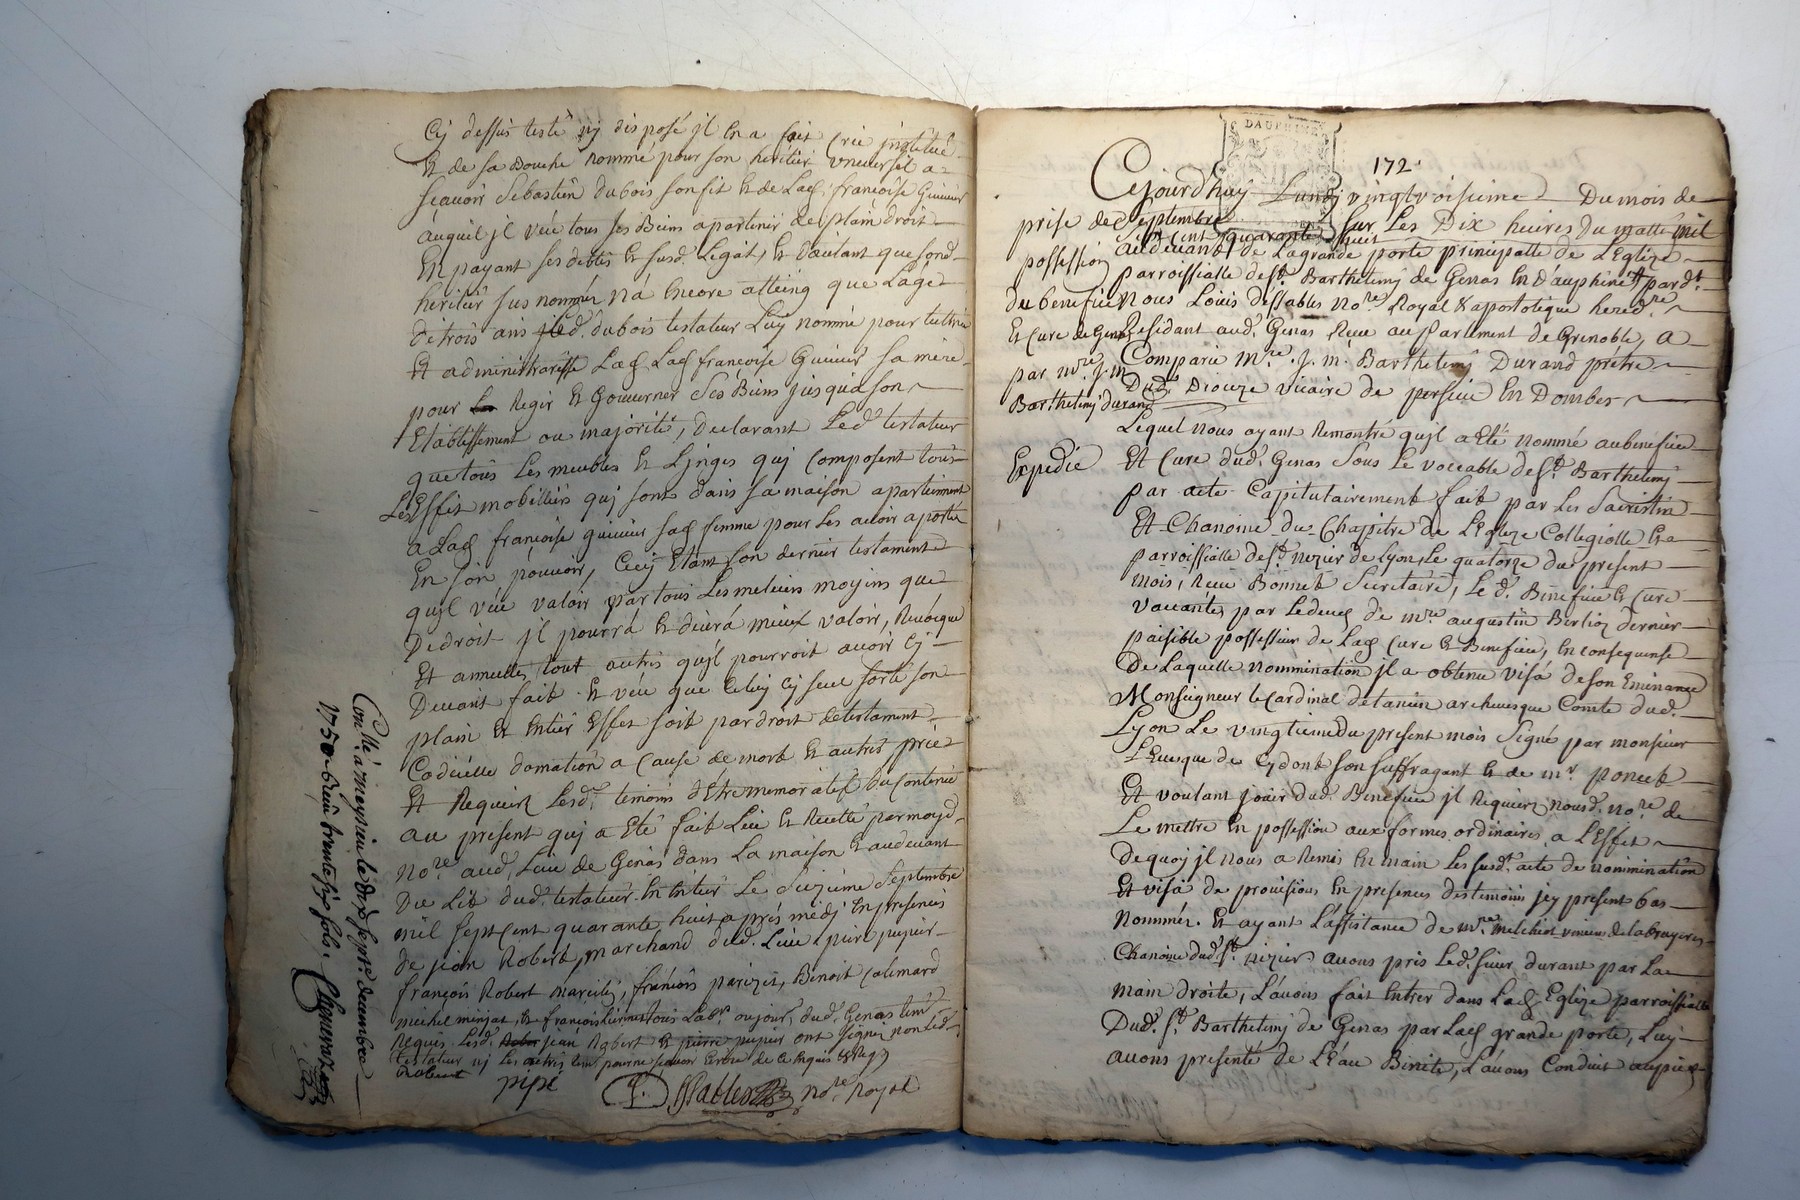 Cy dessus testé ny disposé jl en a fait crée jnstitué
Et de sa Bouche nommé pour son heritier universel a
sçavoir Sebastien dubois son fit Et de Lad. françoise Guinier
auquel jl veut tous ses Biens apartenir de plain droit
En payant ses debtes Et susd. Legat, Et dautant que sond.
heritier sus nommé na Encore atteing que Lage
de trois ans led. dubois testateur Luy nomme pour tutrice
Et administraresse Lad. françoise Guinier sa mere
pour Regir Et Gouverner ses Biens jusqua son
Etablissement ou majorité, declarant Led. testateur
que tous Les meubles Et Linges quj composent tous
Les Effet mobilliers quj sont dans sa maison apartiennent
a Lad. françoise guinier sad. femme pour Les avoir aportés
En son pouvoir, Cecy Etant son dernier testament
qujl veut valoir par tous Les melieurs moyens que
De droit jl pourra Et devra mieux valoir, Revoque
Et annulle tout autres qujl pourroit avoir Cy
Devant fait. Et veut que Celuy Cy seul sorte son
plain Et Entier Effet soit par droit de testament
Codicille donnation a Cause de mort Et autres prie
Et Requiert Lesd. temoins d'Etre memoratif du Contenu
au present quj a Eté fait Leu Et Recitté par moyd.
no.re aud. Lieu de Genas dans La maison Et audevant
Du Lit dud. testateur Le seizieme Septembre
mil sept Cent quarante huit apres midj En presences
de jean Robert, marchand dud. Lieu, piere pupier
françois Robert, françois parizet, Benoit Calemard
michel minjat, Et françois tous Lab.rs dud. Genas tem.
Requis Lesd. jean Robert Et pierre pupier ont signé non Led.
testateur nj Les autres pour ne sçavoir Ecrire de ce Requis
Robert
pipié
Dessables no.re Royal
Con.llé a Meyzieu le dix sept.e decembre
1750 Reçu trente six sols.
DAUPHINE
172
Cejourd'huy Lundj vingt troisieme Du mois de
Septembre sur Les Dix heures du matin mil
sept Cent quarante huit
audevant de La grande porte principalle de L'Eglize
parroissialle de S.t Barthelemj de Genas En Dauphiné pard.t
Nous Loüis dessables no.re Royal & appostolique hered.re
Residant aud. Genas Receu au parlement de Grenoble, a
Comparu M.re J. M. Barthelemj Durand prêtre
Dud. Diouze vicaire de persieu En Dombes
prise de
possession
du benefice
Et Cure de Genas
par m.re J. M.
Barthelemj durand
Expedié
Lequel nous ayant Remontré qujl a Eté nommé au benefice
Et Cure dud. Genas sous Le vocable de S.t Barthelemj
par acte Capitulairement fait par Les Sacristin
Et Chanoine du Chapitre de L'Eglize Collegialle Et
parroissialle de S.t nizier de Lyon, Le quatorze du present
mois, Receu Bonnet Secretaire, Led. Benefice Et Cure
vaccantes par Le deces de M.re augustin Berlioz dernier
paisible possesseur de Lad. Cure Et Benefice, En consequense
De Laquelle nommination jl a obtenu visa de son Eminance
Monseigneur Le Cardinal de tancin archevesque Comte dud.
Lyon Le vingtieme du present mois Signé par monsieur
L'Evesque de Cydont son suffragant Et de m.r poncet
Et voulant joüir dud. Benefice jl Requiert nousd. no.re de
Le mettre En possession aux formes ordinaires a L'Effet
De quoj jl nous a Remis En main Les susd. acte de nommination
Et visa de provisions En presences des temoins jcy present bas
Nommés. Et ayant L'assistance de M.re melchiot de labruyeres
Chanoine dud. S.t nizier avons pris Led. sieur durant par La
main droite, L'avons fait Entrer dans Lad. Eglize parroissialle
Dud. S.t Barthelemj de Genas par Lad. grande porte, Luy
avons presenté de L'Eau Benite, L'avons Conduit aupied